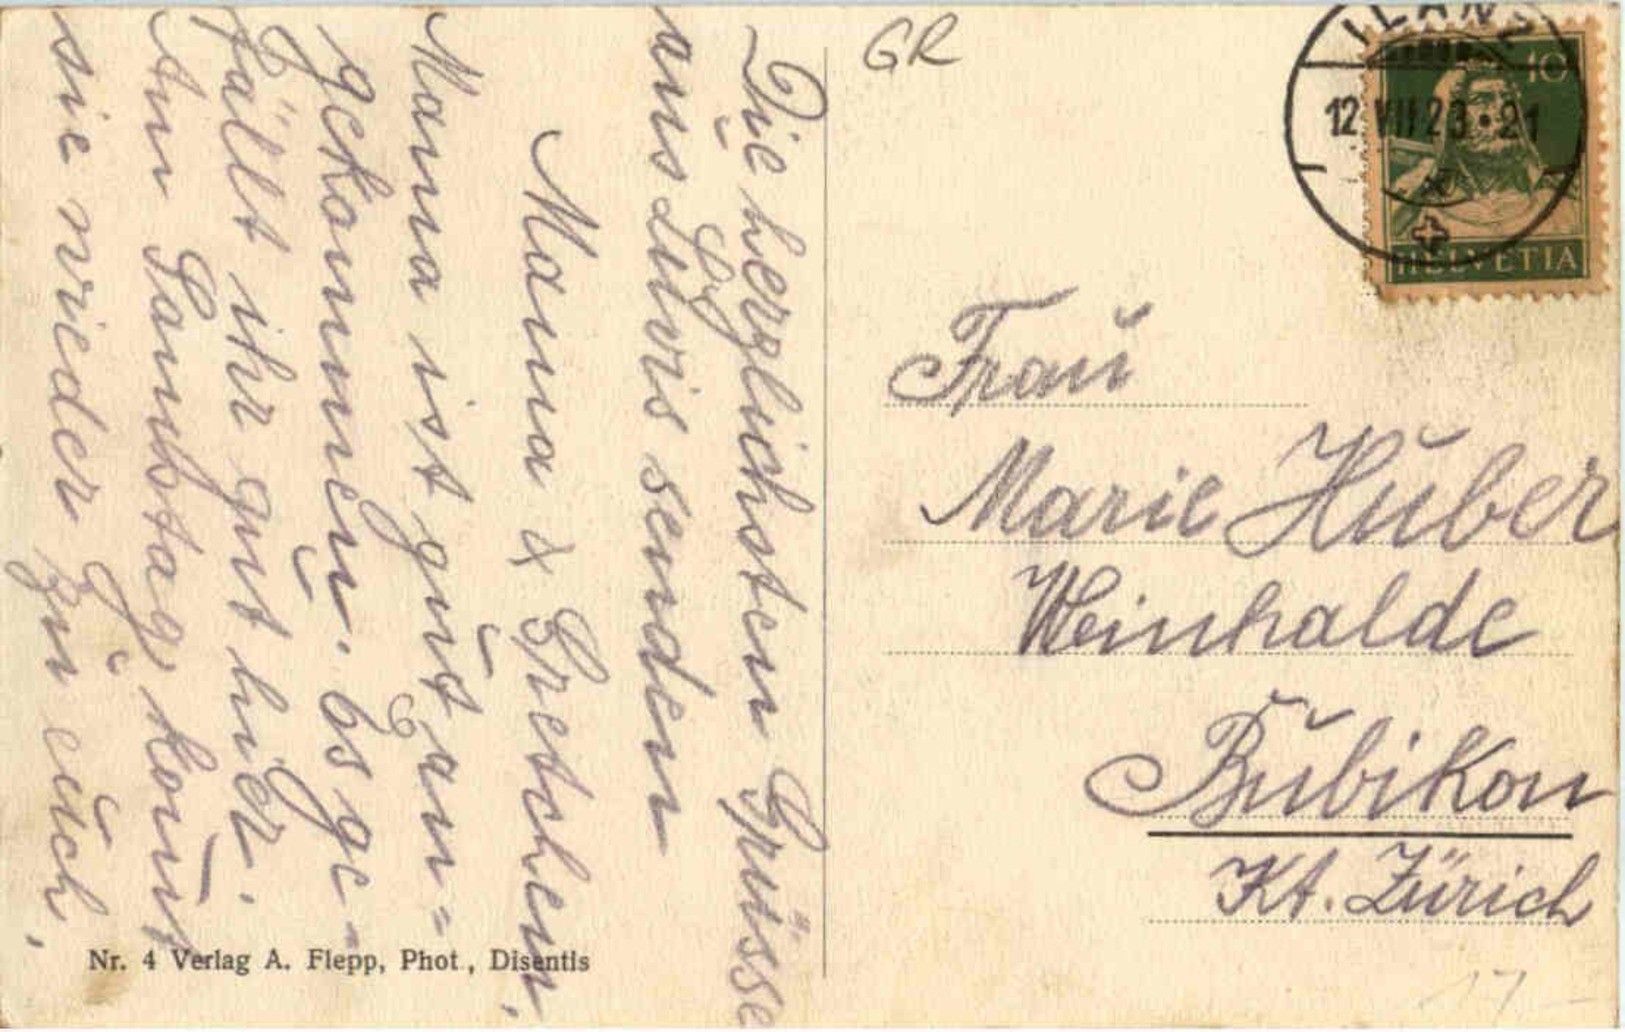 Die herzlichsten Grüsse
aus Luvis senden
Mama & Gretchen,
Mama ist gut an=
gekommen. Es ge-
fällt ihr gut hier.
Am Samstag kommt
sie wieder zu euch.
Nr. 4 Verlag A. Flepp, Phot., Disentis
GR
ILANZ
12 VII 23·21
10
HELVETIA
Frau
Marie Huber
Weinhalde
Bubikon
Kt. Zürich
17